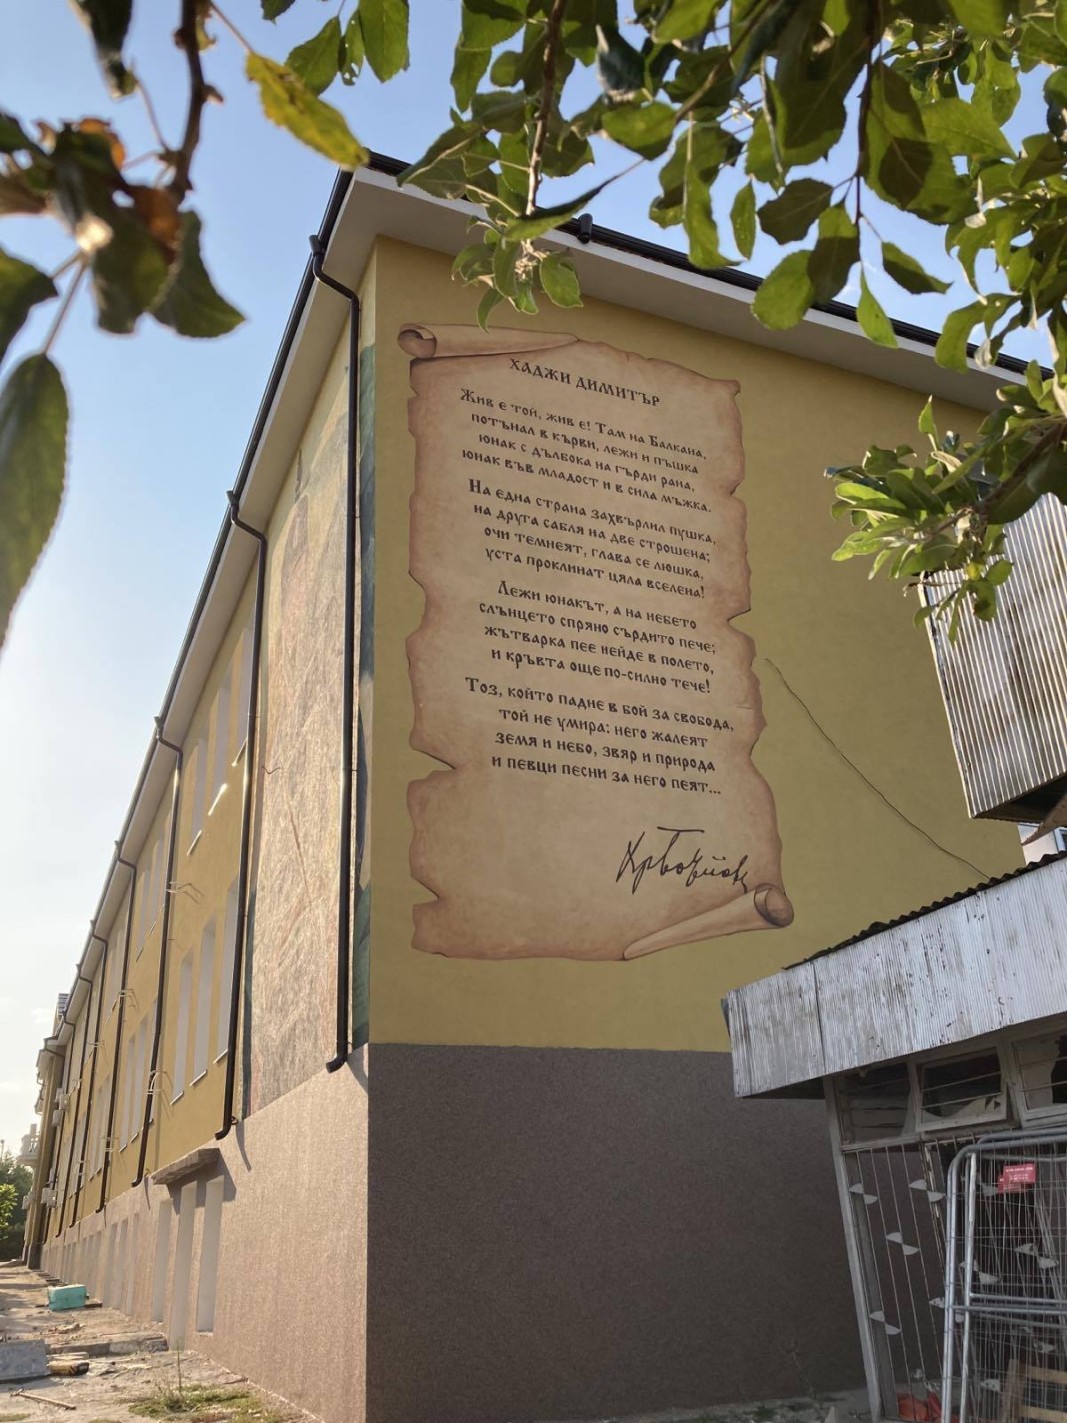 ХАДЖИ ДИМИТЪР
Жив е той, жив е! Там на Балкана,
потънал в кърви, лежи и пъшка
юнак с дълбока на гърди рана,
юнак във младост и в сила мъжка.
На една страна захвърлил пушка,
на друга сабля на две строшена;
очи темнеят, глава се люшка,
уста проклинат цяла вселена!
Лежи юнакът, а на небето
слънцето спряно сърдито пече;
жътварка пее нейде в полето,
и кръвта още по-силно тече!
Тоз, който падне в бой за свобода,
той не умира: него жалеят
земя и небо, звяр и природа
и певци песни за него пеят...
ХрБотйовъ